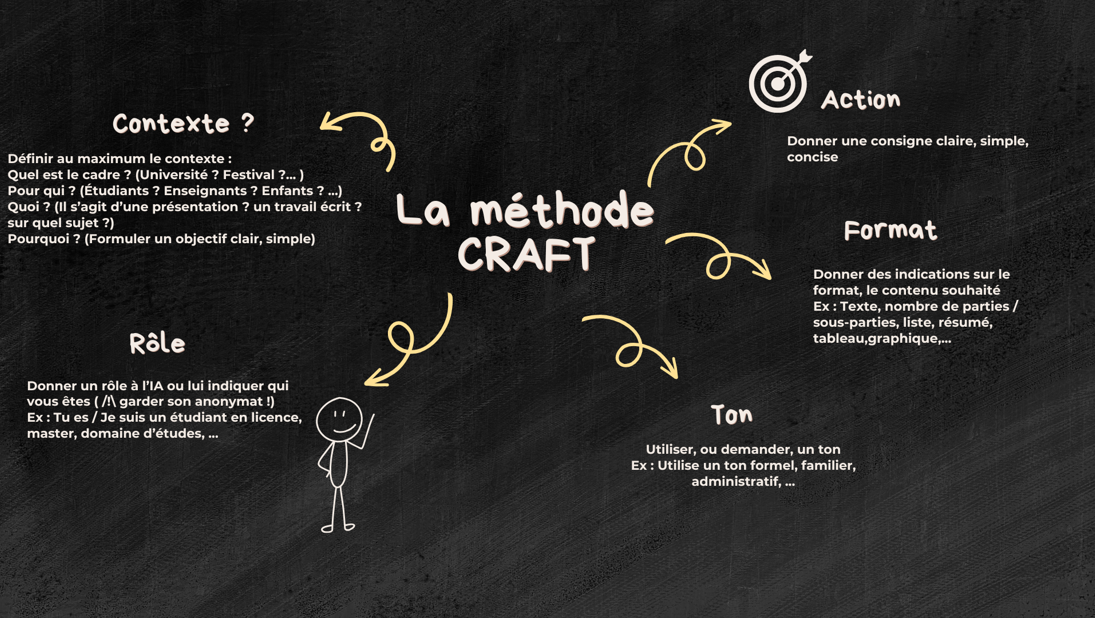 La méthode
CRAFT
Contexte ?
Définir au maximum le contexte :
Quel est le cadre ? (Université ? Festival ?... )
Pour qui ? (Étudiants ? Enseignants ? Enfants ? ...)
Quoi ? (Il s’agit d’une présentation ? un travail écrit ?
sur quel sujet ?)
Pourquoi ? (Formuler un objectif clair, simple)
Rôle
Donner un rôle à l’IA ou lui indiquer qui
vous êtes ( /!\ garder son anonymat !)
Ex : Tu es / Je suis un étudiant en licence,
master, domaine d’études, ...
Action
Donner une consigne claire, simple,
concise
Format
Donner des indications sur le
format, le contenu souhaité
Ex : Texte, nombre de parties /
sous-parties, liste, résumé,
tableau,graphique,...
Ton
Utiliser, ou demander, un ton
Ex : Utilise un ton formel, familier,
administratif, ...